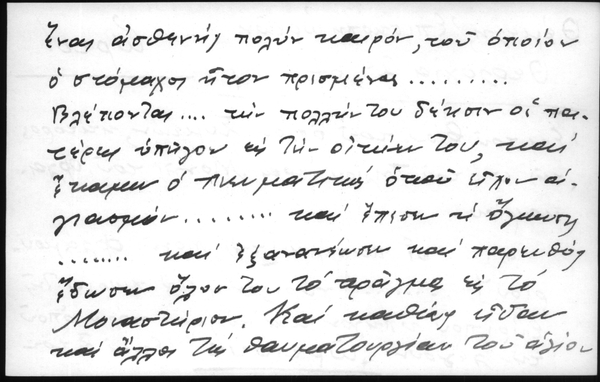 ἕνας ἀσθενής πολύν καιρόν, τοῦ ὁποίου
ὁ στόμαχος ἦτον πρισμένος.........
Βλέποντας.... τήν πολλήν του δέησιν οἱ πα-
τέρες ὑπῆγον εἰς τήν οἰκίαν του, καί
ἔκαμεν ὁ Πνευματικός ὁποῦ εἶχον ἁ-
γιασμόν........ καί ἔπεσεν ἡ ὄγκωσις
........ καί ἐξανανέωσεν καί παρευθύς
ἔδωσεν ὅλον του τό πράγμα εἰς τό
Μοναστήριον. Καί καθώς εἶδαν
καί ἄλλοι τήν θαυματουργίαν τοῦ ἁγίου